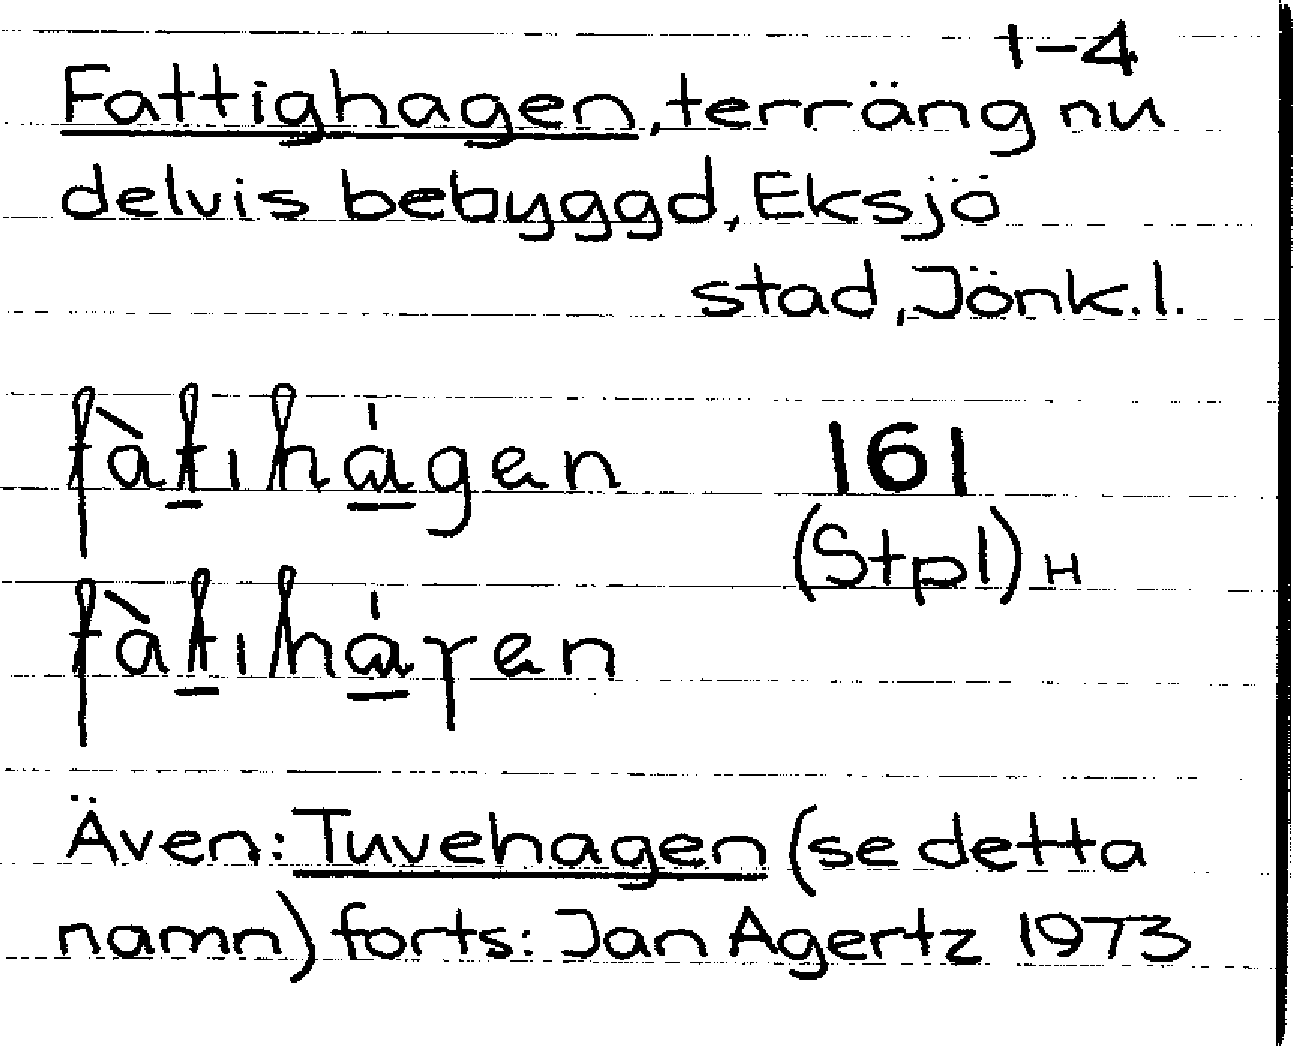 1-4
Fattighagen, terräng nu
delvis bebyggd, Eksjö
stad, Jönk. l.
fàtıhágen 161
(Stpl) H
fàtıháγen
Även: Tuvehagen (se detta
namn) forts: Jan Agertz 1973